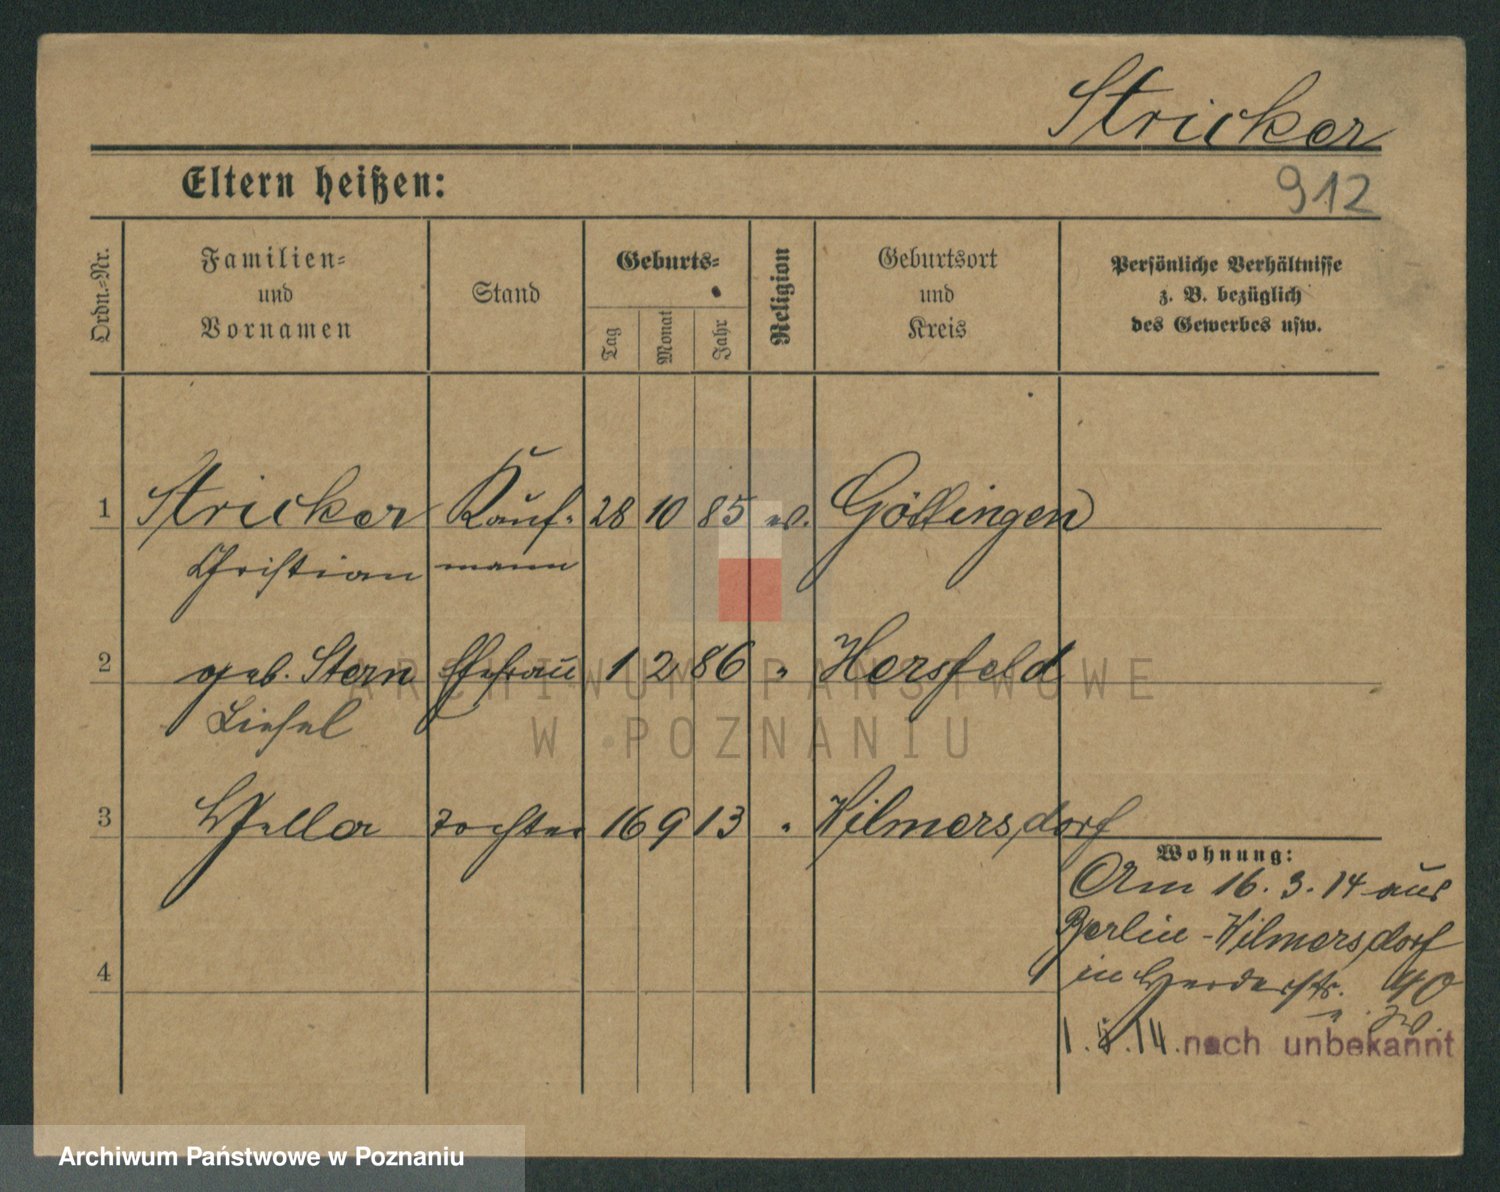 Stricker
Eltern heißen:
912
Ordn.-Nr.
Familien-
und
Vornamen
Stand
Geburts-
Tag
Monat
Jahr
Religion
Geburtsort
und
Kreis
Persönliche Verhältnisse
z. B. bezüglich
des Gewerbes usw.
1 Stricker Kauf- 28 10 85 ev. Göttingen
Christian mann
2 geb. Stern Ehefrau 1 2 86 " Hersfeld
Liesel
3 Hella Tochter 16 9 13 " Wilmersdorf
Wohnung:
Am 16. 3. 14 aus
Berlin-Wilmersdorf
4
in Herderstr. 40
1. 14. nach unbekannt
ARCHIWUM PAŃSTWOWE
W POZNANIU
Archiwum Państwowe w Poznaniu